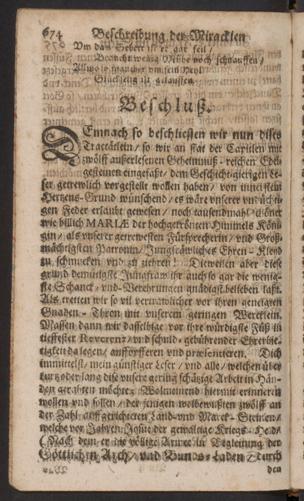 674 Beschreibung der Miracklen
Um das Silber ist er gar feil /
Braucht wenig Mühe noch schnauffen /
Beschluß.
DEmnach so beschliessen wir nun dises
Tractätlein / so wir an statt der Capitlen mit
zwölff außerlesenen Geheimnuß-reichen Edel-
gesteinen eingefaßt / dem Geschicht-gierigen Le-
ser getreulich vorgestellt wollen haben / von innerstem
Hertzens-Grund wünschend / es wäre unserer
gen Feder erlaubt gewesen / noch tausendmahl schöner
wie billich MARIÆ der hochgekrönten Himmels Köni-
gin / als unserer getreuesten Fürsprecherin / und Groß-
mächtigsten Patronin / Jungfräwliches Ehren-Kleyd
zu schmucken und zu zieren. Dieweilen aber dise
grund demütigste Jungfraw ihr auch so gar die wenig-
ste Schanck- und Verehrungen gnädigst belieben laßt.
Als tretten wir so vil vertrawlicher vor ihren
Gnaden-Thron mit unserem geringen Wercklein.
Massen dann wir dasselbige vor ihre würdigste Füß in
tieffester Reverenz / und schuld-gebührender Ehrerbie-
tigkeit da legen / auffopfferen und præsentieren. Dich
immittelst / mein günstiger Leser / und alle / welchen über
kurtz oder lang dise unsere gering schätzige Arbeit in Hän-
den gerathen möchte / Wolmeinend hiermit erinneren
wollen und sollen / der jenigen wolbewußten zwölff an
der Zahl auffgerichteten Land- und Marck-Steinen /
welche vor Jahren Josue der gewaltige Kriegs-Held /
(Nach dem er die völlige Armee in Begleitung der
Göttlichen Arch / und Bunds-Laden / durch
den